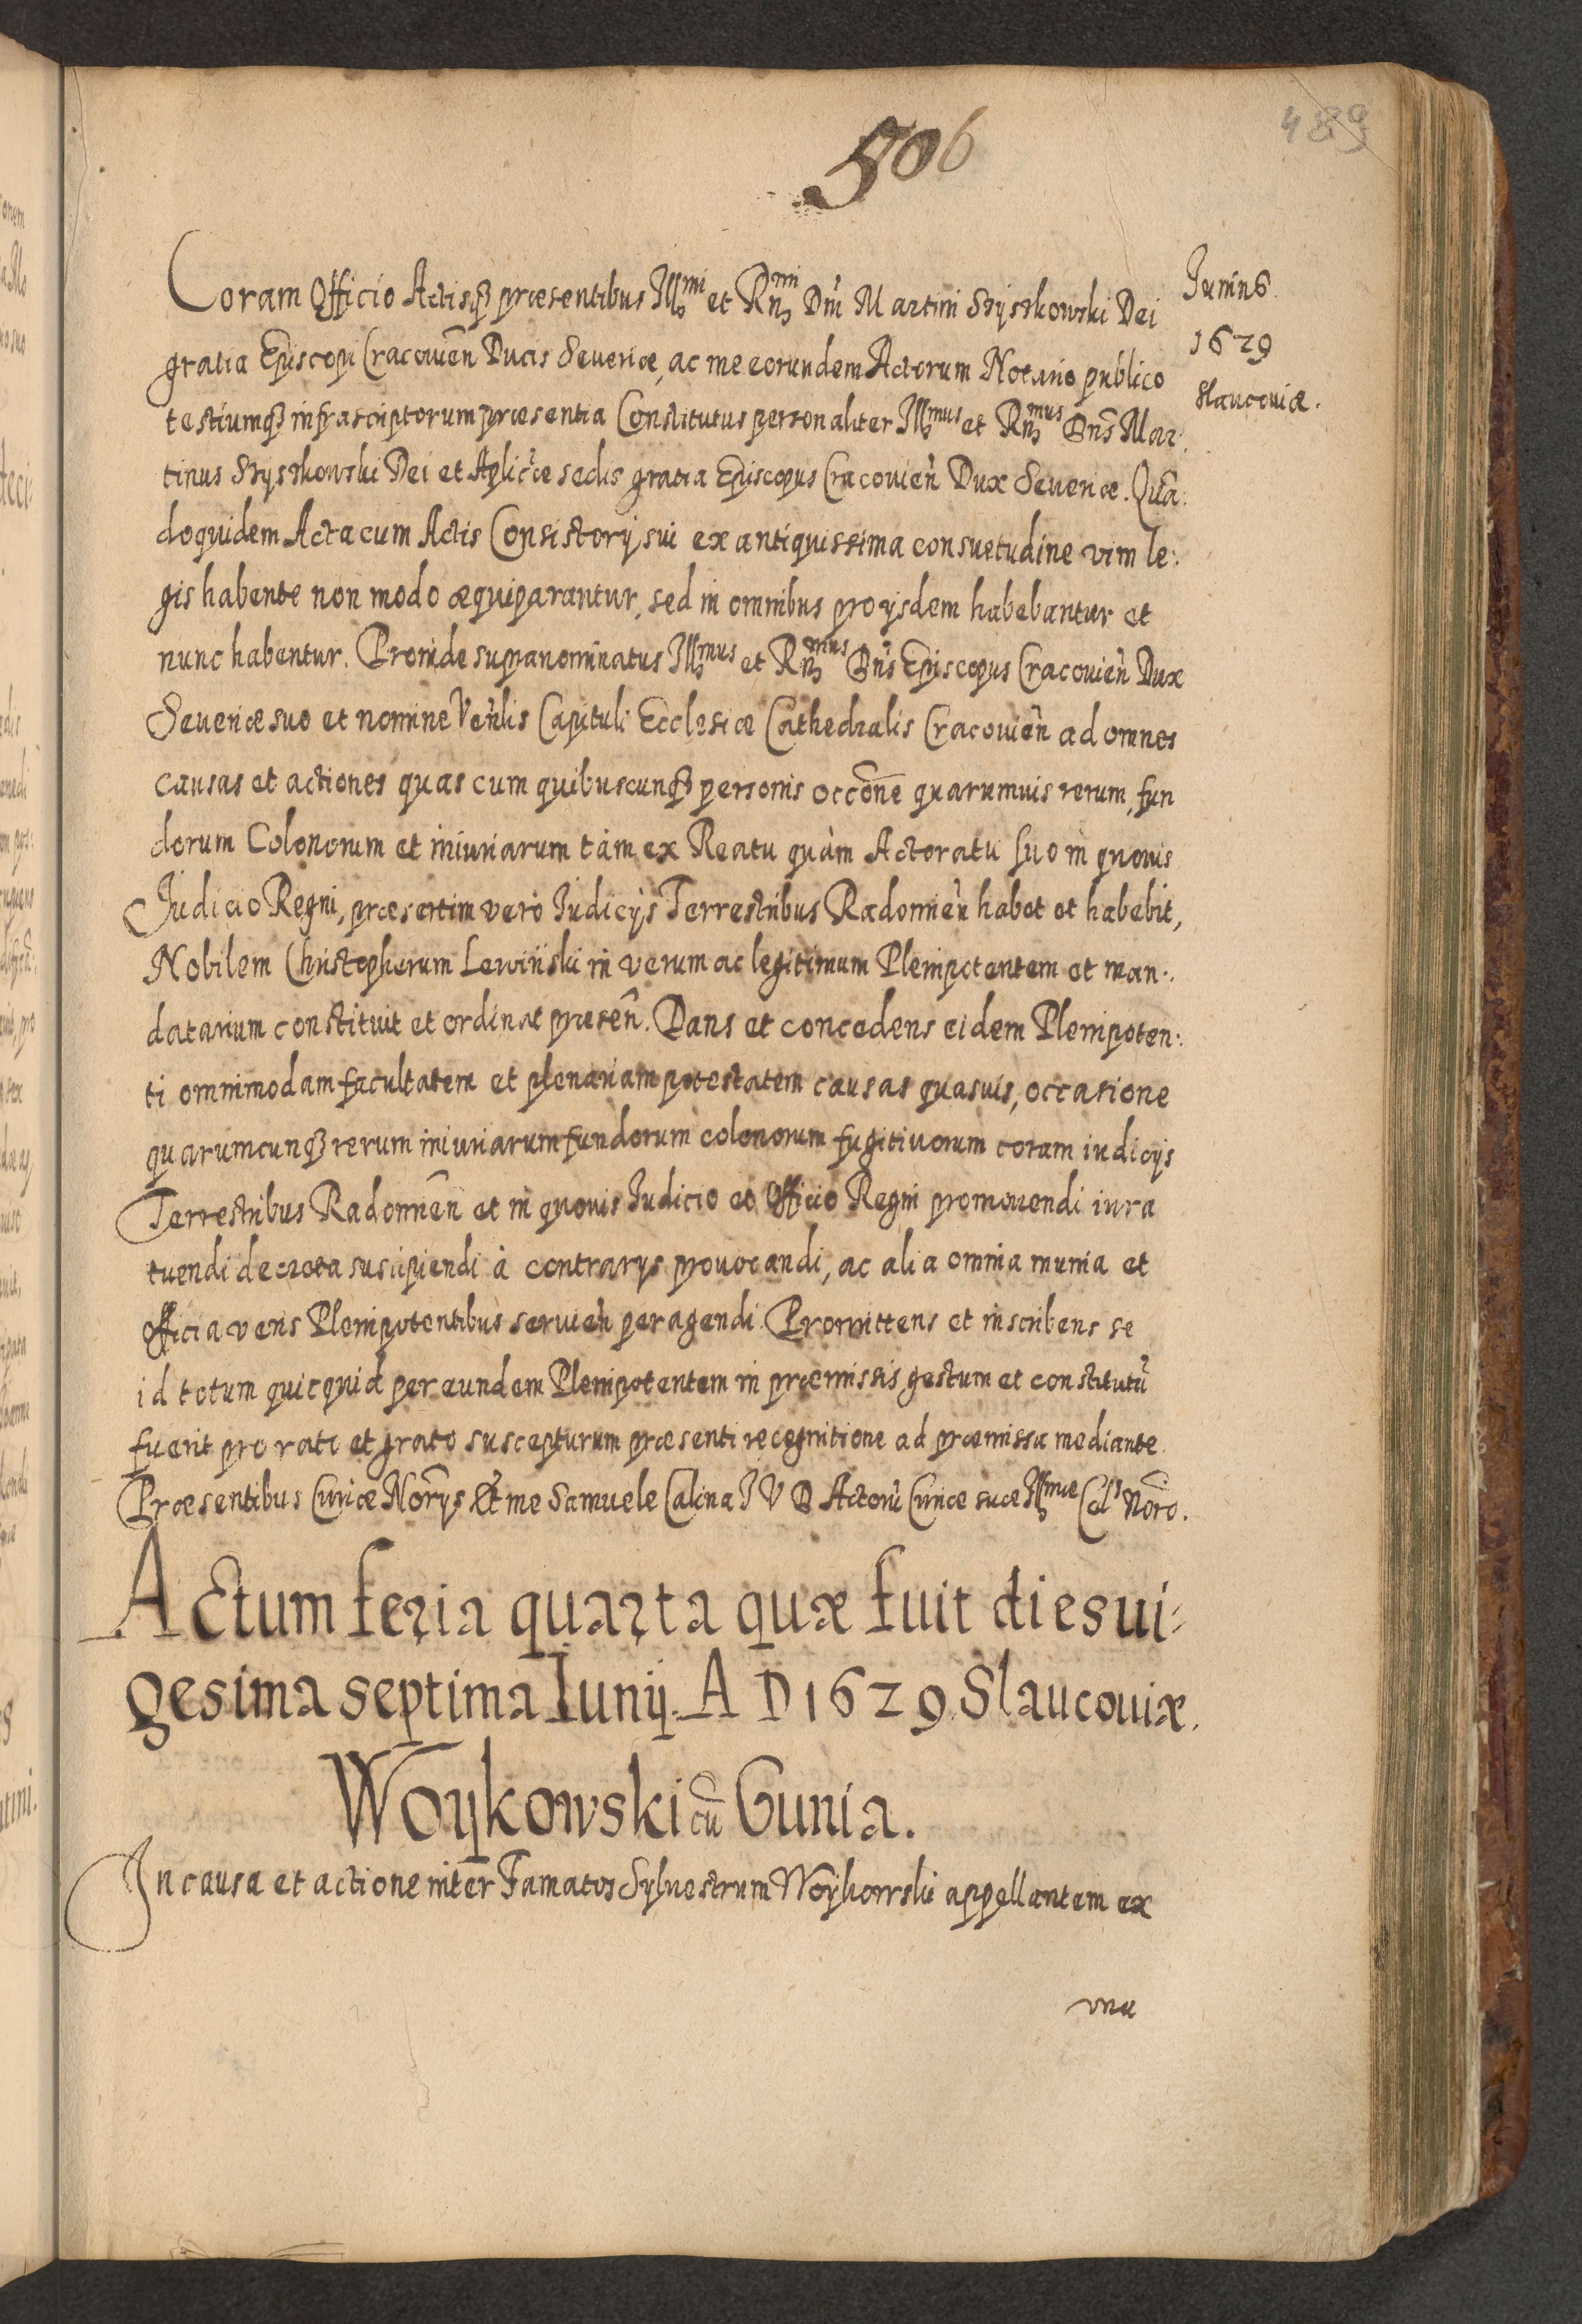 506
489
Junius
1629
Slaucouiæ.
Coram Officio Actisq̃ præsentibus Illmi et Rmi Dni Martini Szyszkowski Dei
gratia Episcopi Cracouien Ducis Seueriæ, ac me eorundem Actorum Notario publico
testiumq̃ infrascriptorum præsentia Constitutus personaliter Illmus et Rmus Dns Mar:
tinus Szyszkowski Dei et Aplicæ sedis gratia Episcopus Cracouień Dux Seueriæ. Quã:
doquidem Acta cum Actis Consistorÿ sui ex antiquissima consuetudine vim le:
gis habente non modo æquiparantur, sed in omnibus pro ÿsdem habebantur et
nunc habentur. Proinde supranominatus Illmus et Rmus Dns Episcopus Cracouień Dux
Seueriæ suo et nomine Venlis Capituli Ecclesiæ Cathedralis Cracouień ad omnes
causas et actiones quas cum quibuscunq̃ personis occone quarumuis rerum, fun
dorum Colonorum et iniuriarum tàm ex Reatu quàm Actoratu suo in quouis
Judicio Regni, præsertim verò Judicÿs Terrestribus Radomień habet et habebit,
Nobilem Christophorum Lewiński in verum ac legitimum Plenipotentem et man:
datarium constituit et ordinat præsen. Dans et concedens eidem Plenipoten:
ti omnimodam facultatem et plenariam potestatem causas quasuis, occasione
quarumcunq̃ rerum iniuriarum fundorum colonorum fugitiuorum coram iudicÿs
Terrestribus Radomień et in quouis Judicio et Officio Regni promouendi iura
tuendi decreta suscipiendi à contrarÿs prouocandi, ac alia omnia munia et
officia veris Plenipotentibus seruień peragendi. Promittens et inscribens se
id totum quicquid per eundem Plenipotentem in præmissis gestum et constitutũ
fuerit pro rato et grato suscepturum præsenti recognitione ad præmissa mediante.
Præsentibus Curiæ Norÿs et me Samuele Calina J V D Actorũ Curiæ suæ Illmæ Cels Noro.
Actum feria quarta quæ fuit dies ui:
gesima septima Iunÿ. A D 1629 Slaucouiæ.
Woÿkowski cũ Gunia.
In causa et actione inter Famatos Sylvestrum Woÿkowski appellantem ex
vna